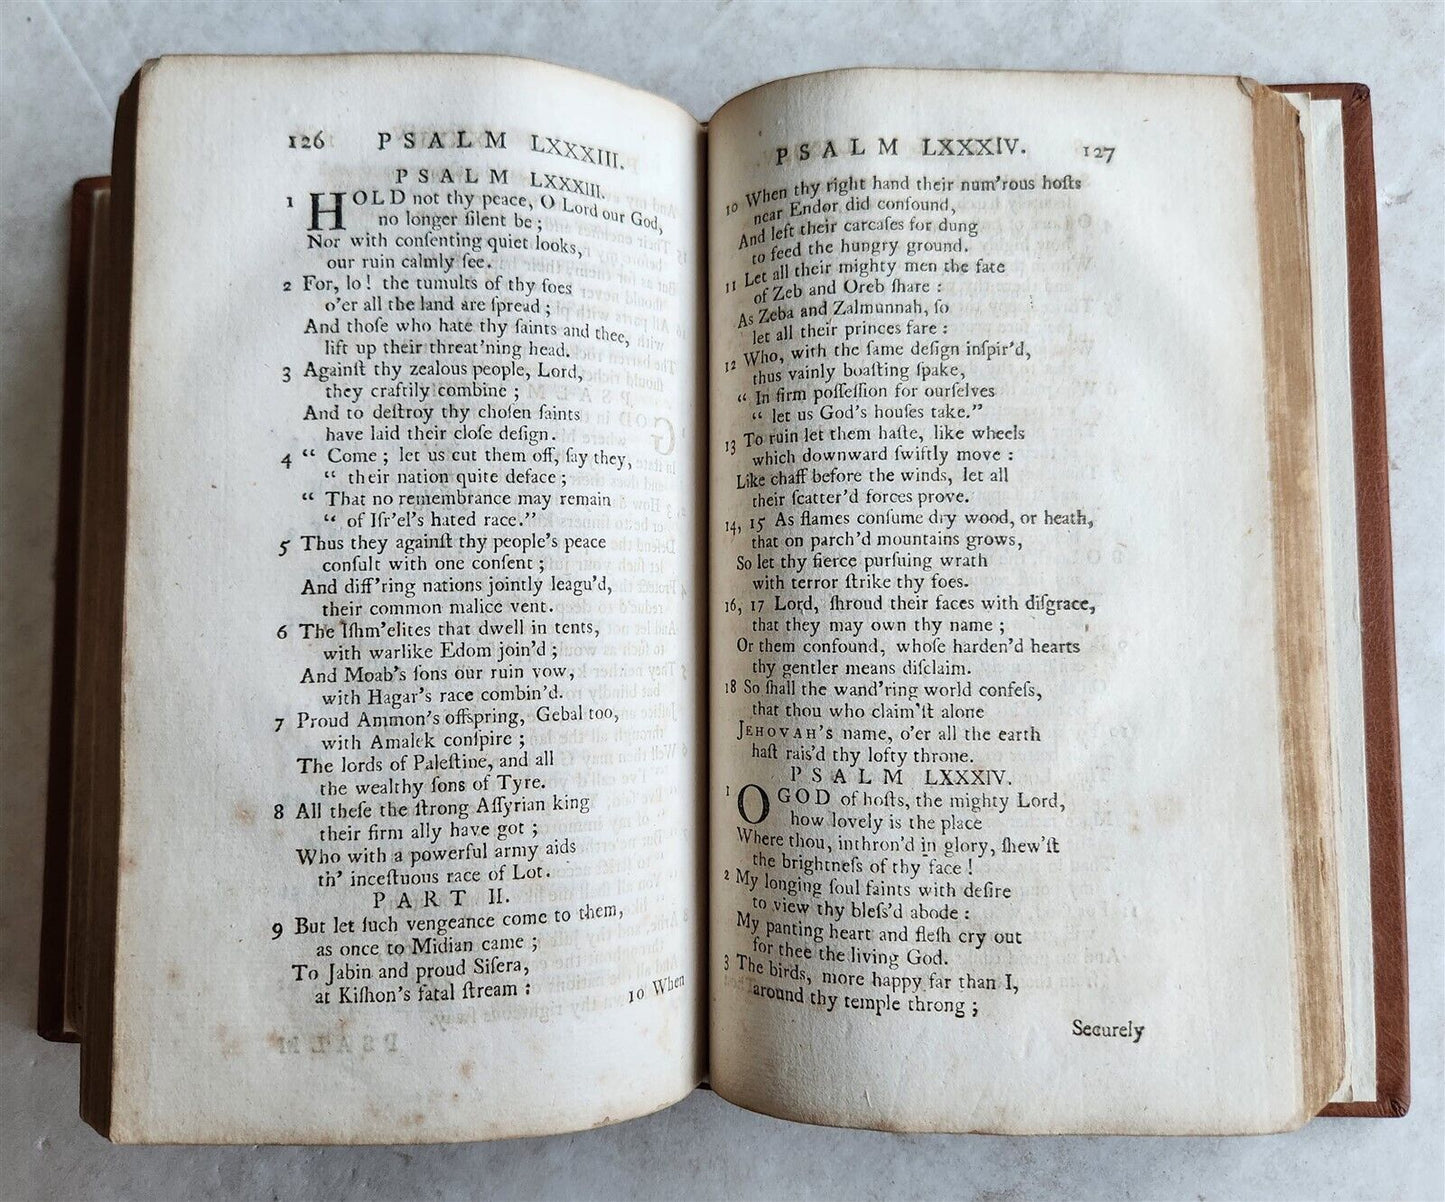 126 PSALM LXXXIII.
PSALM LXXXIII.
1 HOLD not thy peace, O Lord our God,
no longer ſilent be ;
Nor with conſenting quiet looks,
our ruin calmly ſee.
2 For, lo ! the tumults of thy foes
o'er all the land are ſpread ;
And thoſe who hate thy ſaints and thee,
lift up their threat'ning head.
3 Againſt thy zealous people, Lord,
they craftily combine ;
And to deſtroy thy choſen ſaints
have laid their cloſe deſign.
4 “ Come ; let us cut them off, ſay they,
“ their nation quite deface ;
“ That no remembrance may remain
“ of Iſr'el's hated race.”
5 Thus they againſt thy people's peace
conſult with one conſent ;
And diff'ring nations jointly leagu'd,
their common malice vent.
6 The Iſhm'elites that dwell in tents,
with warlike Edom join'd ;
And Moab's ſons our ruin vow,
with Hagar's race combin'd.
7 Proud Ammon's offspring, Gebal too,
with Amalek conſpire ;
The lords of Paleſtine, and all
the wealthy ſons of Tyre.
8 All theſe the ſtrong Aſſyrian king
their firm ally have got ;
Who with a powerful army aids
th' inceſtuous race of Lot.
PART II.
9 But let ſuch vengeance come to them,
as once to Midian came ;
To Jabin and proud Siſera,
at Kiſhon's fatal ſtream :
10 When
PSALM LXXXIV. 127
10 When thy right hand their num'rous hoſts
near Endor did confound,
And left their carcaſes for dung
to feed the hungry ground.
11 Let all their mighty men the fate
of Zeb and Oreb ſhare :
As Zeba and Zalmunnah, ſo
let all their princes fare :
12 Who, with the ſame deſign inſpir'd,
thus vainly boaſting ſpake,
“ In firm poſſeſſion for ourſelves
“ let us God's houſes take.”
13 To ruin let them haſte, like wheels
which downward ſwiftly move :
Like chaff before the winds, let all
their ſcatter'd forces prove.
14, 15 As flames conſume dry wood, or heath,
that on parch'd mountains grows,
So let thy fierce purſuing wrath
with terror ſtrike thy foes.
16, 17 Lord, ſhroud their faces with diſgrace,
that they may own thy name ;
Or them confound, whoſe harden'd hearts
thy gentler means diſclaim.
18 So ſhall the wand'ring world confeſs,
that thou who claim'ſt alone
JEHOVAH's name, o'er all the earth
haſt rais'd thy lofty throne.
PSALM LXXXIV.
1 O GOD of hoſts, the mighty Lord,
how lovely is the place
Where thou, inthron'd in glory, ſhew'ſt
the brightneſs of thy face !
2 My longing ſoul faints with deſire
to view thy bleſs'd abode :
My panting heart and fleſh cry out
for thee the living God.
3 The birds, more happy far than I,
around thy temple throng ;
Securely